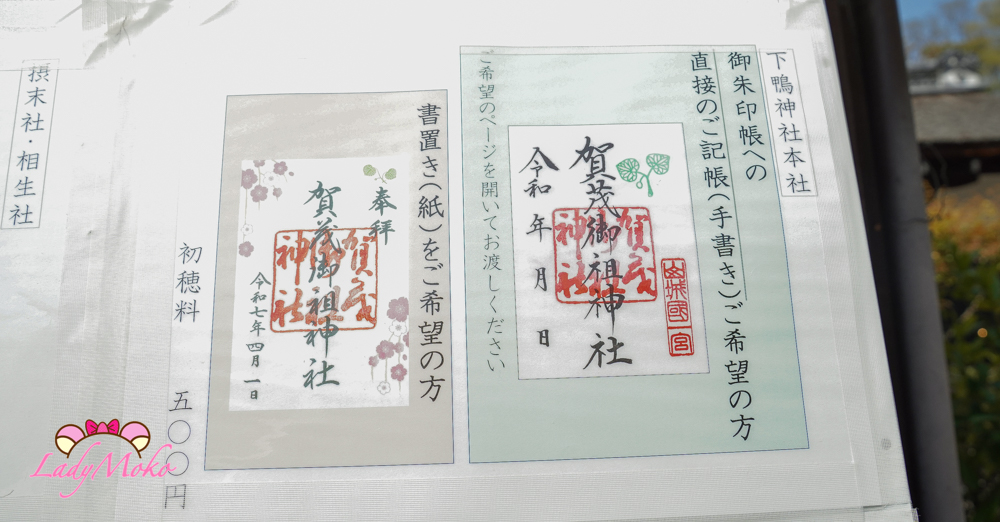 下鴨神社本社
御朱印帳への
直接のご記帳(手書き)ご希望の方
奉拝
賀茂御祖神社
賀茂御祖神社
山城國一宮
令和 年 月 日
ご希望のページを開いてお渡しください
書置き(紙)をご希望の方
奉拝
賀茂御祖神社
賀茂御祖神社
令和七年四月一日
初穂料 五〇〇円
摂末社・相生社
LadyMoko